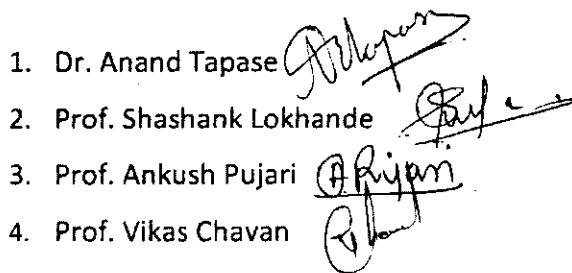 1. Dr. Anand Tapase
2. Prof. Shashank Lokhande
3. Prof. Ankush Pujari
4. Prof. Vikas Chavan